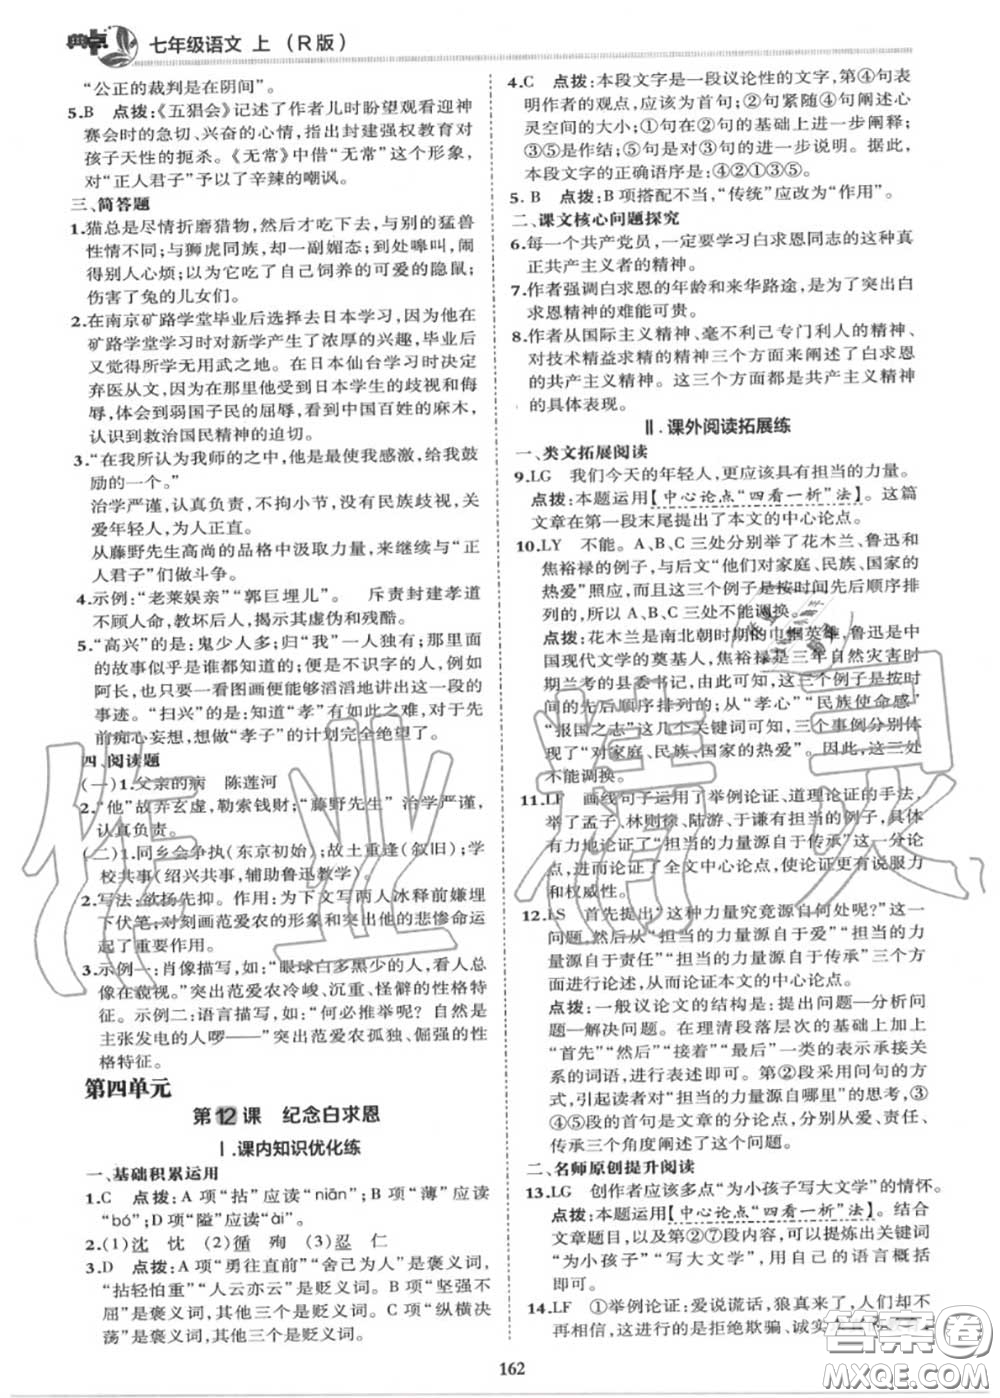 典点 七年级语文 上 （R版）
“公正的裁判是在阴间”。
5.B　点拨:《五猖会》记述了作者儿时盼望观看迎神
赛会时的急切、兴奋的心情，指出封建强权教育对
孩子天性的扼杀。《无常》中借“无常”这个形象，
对“正人君子”予以了辛辣的嘲讽。
三、简答题
1.猫总是尽情折磨猎物，然后才吃下去，与别的猛兽
性情不同；与狮虎同族，却一副媚态；到处嗥叫，闹
得别人心烦；以为它吃了自己饲养的可爱的隐鼠；
伤害了兔的儿女们。
2.在南京矿路学堂毕业后选择去日本学习，因为他在
矿路学堂学习时对新学产生了浓厚的兴趣，毕业后
又觉得所学无用武之地。在日本仙台学习时决定
弃医从文，因为在那里他受到日本学生的歧视和侮
辱，体会到弱国子民的屈辱，看到中国百姓的麻木，
认识到救治国民精神的迫切。
3.“在我所认为我师的之中，他是最使我感激，给我鼓
励的一个。”
治学严谨，认真负责，不拘小节，没有民族歧视，关
爱年轻人，为人正直。
从藤野先生高尚的品格中汲取力量，来继续与“正
人君子”们做斗争。
4.示例:“老莱娱亲”“郭巨埋儿”。　斥责封建孝道
不顾人命，教坏后人，揭示其虚伪和残酷。
5.“高兴”的是:鬼少人多；归“我”一人独有；那里面
的故事似乎是谁都知道的；便是不识字的人，例如
阿长，也只要一看图画便能够滔滔地讲出这一段的
事迹。“扫兴”的是:知道“孝”有如此之难，对于先
前痴心妄想，想做“孝子”的计划完全绝望了。
四、阅读题
(一)1.父亲的病　陈莲河
2.“他”故弄玄虚，勒索钱财；“藤野先生”治学严谨，
认真负责。
(二)1.同乡会争执(东京初始)；故土重逢(叙旧)；学
校共事(绍兴共事，辅助鲁迅教学)。
2.写法:欲扬先抑。作用:为下文写两人冰释前嫌埋
下伏笔；对刻画范爱农的形象和突出他的悲惨命运
起了重要作用。
3.示例一:肖像描写，如:“眼球白多黑少的人，看人总
像在藐视。”突出范爱农冷峻、沉重、怪僻的性格特
征。示例二:语言描写，如:“何必推举呢？自然是
主张发电的人啰——”突出范爱农孤独、倔强的性
格特征。
第四单元
第12课　纪念白求恩
Ⅰ.课内知识优化练
一、基础积累运用
1.C　点拨:A项“拈”应读“niān”；B项“薄”应读
“bó”；D项“隘”应读“ài”。
2.(1)沈　忱　(2)循　殉　(3)忍　仁
3.D　点拨:A项“勇往直前”“舍己为人”是褒义词，
“拈轻怕重”“人云亦云”是贬义词。B项“坚强不
屈”是褒义词，其他三个是贬义词。C项“纵横决
荡”是褒义词，其他三个是贬义词。
4.C　点拨:本段文字是一段议论性的文字，第④句表
明作者的观点，应该为首句；②句紧随④句讲小心
灵空间的大小；①句在②句的基础上进一步阐释；
③⑤是作结；⑤句是对③句的进一步说明。据此，
本段的正确语序是:④②①③⑤。
5.B　点拨:B项搭配不当，“传统”应改为“作用”。
二、课文核心问题探究
6.每一个共产党员，一定要学习白求恩同志的这种真
正共产主义者的精神。
7.作者强调白求恩的年龄和来华路途，是为了突出白
求恩精神的难能可贵。
8.作者从国际主义精神、毫不利己专门利人的精神、
对技术精益求精的精神三个方面来阐述了白求恩
的共产主义精神。这三个方面都是共产主义精神
的具体表现。
Ⅱ.课外阅读拓展练
一、类文拓展阅读
9.LG　我们今天的年轻人，更应该具有担当的力量。
点拨:本题运用【中心论点“四看一析”法】。这篇
文章在第一段末尾提出了本文的中心论点。
10.LY　不能。A、B、C三处分别举了花木兰、鲁迅和
焦裕禄的例子，与后文“他们对家庭、民族、国家的
热爱”照应，而且这三个例子是按时间先后顺序排
列的，所以A、B、C三处不能调换。
点拨:花木兰是南北朝时期的巾帼英雄，鲁迅是中
国现代文学的奠基人，焦裕禄是三年自然灾害时
期兰考的县委书记，由此可知，这三个例子是按时
间的先后顺序排列的；从“孝心”“民族使命感”
“报国之志”这几个关键词可知，三个事例分别体
现了“对家庭、民族、国家的热爱”。因此，这三处
不能调换。
11.LF　画线句子运用了举例论证、道理论证的手法，
举了孟子、林则徐、陆游、于谦有担当的例子，具体
有力地论证了“担当的力量源自于传承”这一分论
点，进而论证了全文中心论点，使论证更有说服力
和权威性。
12.LS　首先提出“这种力量究竟源自何处呢？”这一
问题，然后从“担当的力量源自于爱”“担当的力量
源自于责任”“担当的力量源自于传承”三个方面
进行论述，从而论证本文的中心论点。
点拨:一般议论文的结构是:提出问题—分析问
题—解决问题。在理清段落层次的基础上加上
“首先”“然后”“接着”“最后”一类的表示逻辑关系
的词语，进行表述即可。第②段采用问句的方式，
引起读者对“担当的力量源自哪里”的思考，③④
⑤段的首句是文章的分论点，分别从爱、责任、传
承三个角度阐述了这个问题。
二、名师原创提升阅读
13.LG　创作者应该多点“为小孩子写大文学”的情怀。
点拨:本题运用【中心论点“四看一析”法】。结合
文章题目，以及第②⑦段内容，可以提炼出关键词
“为小孩子”“写大文学”，用自己的语言概括
即可。
14.LF　①举例论证:爱说谎话，狼真来了，人们却不
再相信，这发出的是拒绝欺骗、诚实
162
作业精灵
答案圈
MXQE.COM